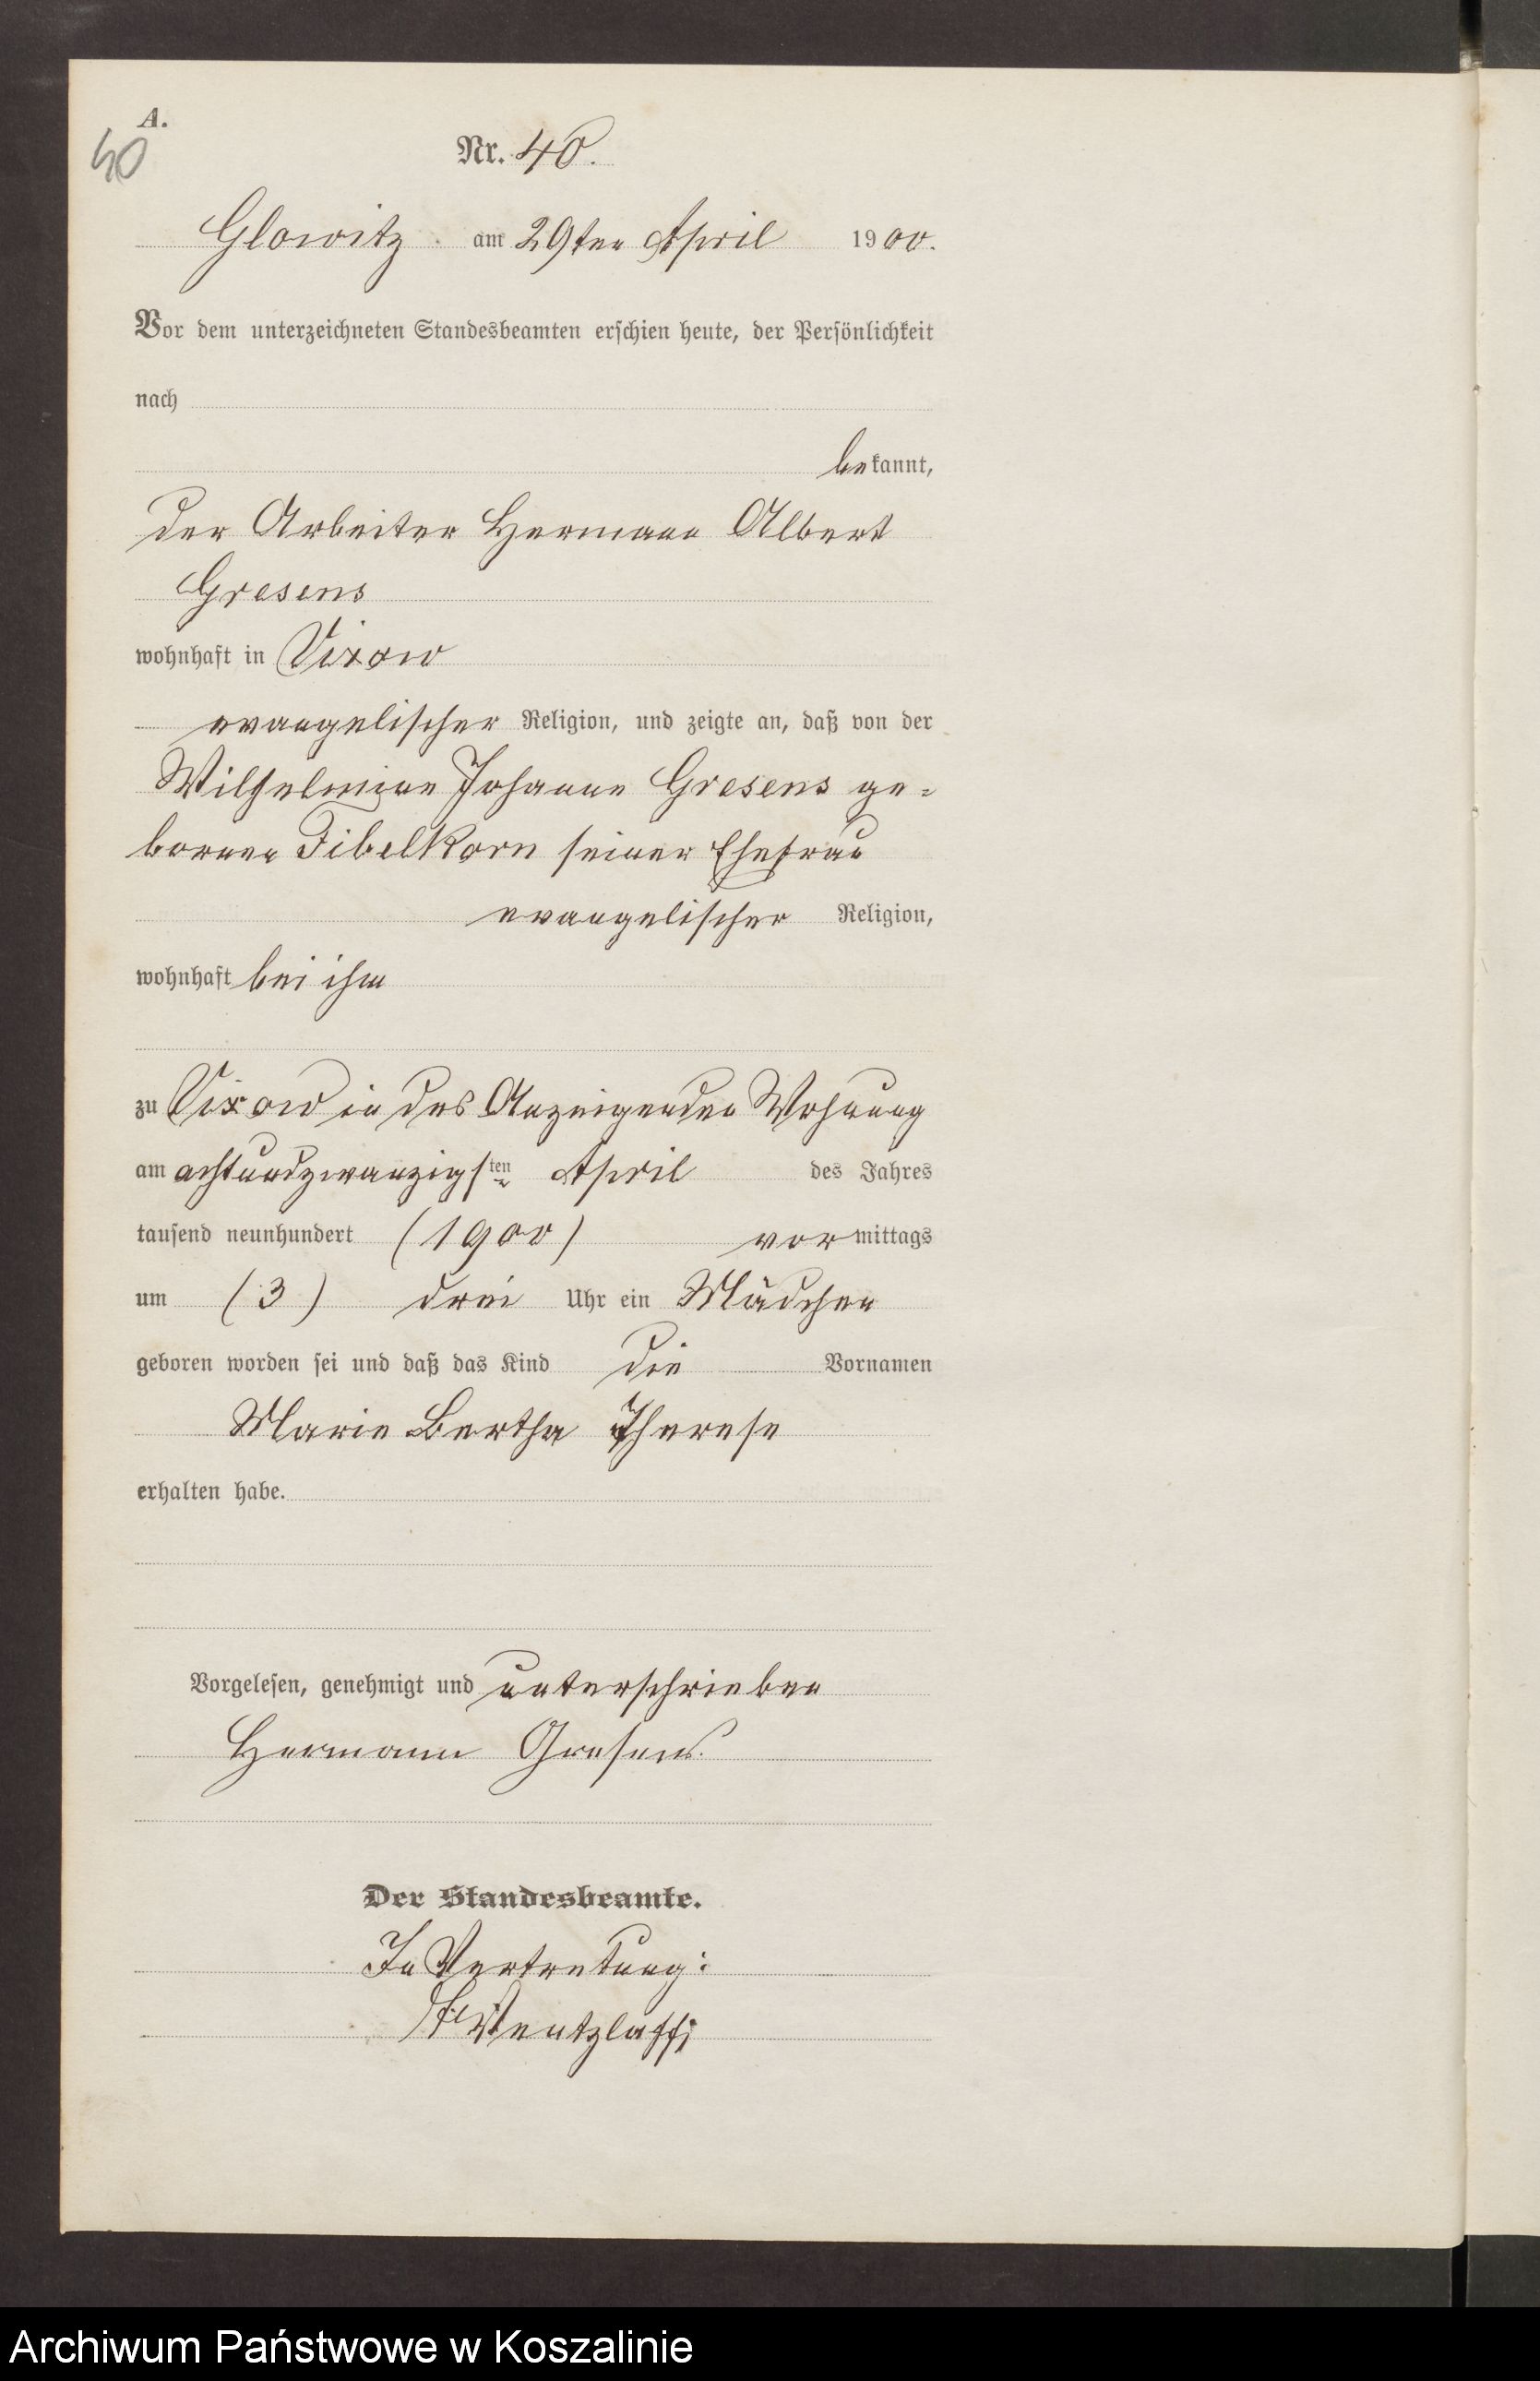 A.
40
Nr. 40.
Glowitz am 29ten April 1900.
Vor dem unterzeichneten Standesbeamten erschien heute, der Persönlichkeit
nach
bekannt,
der Arbeiter Hermann Albert
Gresens
wohnhaft in Vixow
evangelischer Religion, und zeigte an, daß von der
Wilhelmine Johanne Gresens ge-
borenen Fibelkorn seiner Ehefrau
evangelischer Religion,
wohnhaft bei ihm
zu Vixow in des Anzeigenden Wohnung
am achtundzwanzigsten April des Jahres
tausend neunhundert (1900) vormittags
um (3) drei Uhr ein Mädchen
geboren worden sei und daß das Kind die Vornamen
Marie Bertha Therese
erhalten habe.
Vorgelesen, genehmigt und unterschrieben
Hermann Gresens.
Der Standesbeamte.
In Vertretung:
Wentzlaff
Archiwum Państwowe w Koszalinie